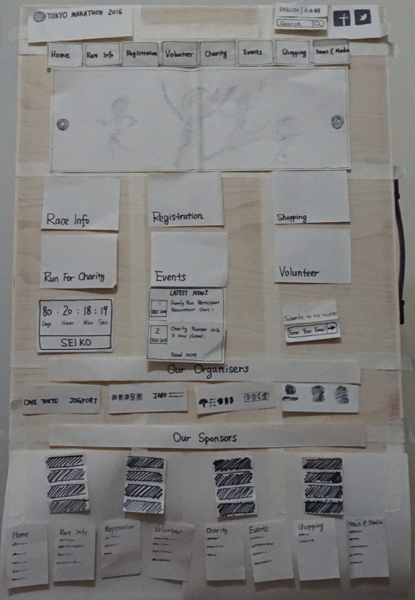 TOKYO MARATHON 2016
ENGLISH
Search
Home Race Info Registration Volunteer Charity Events Shopping News & Media
Race Info Registration Shopping
Run For Charity Events Volunteer
80 : 20 : 18 : 19
Days Hours Min Sec
SEIKO
LATEST NEWS
1 Family Run Participant
2 Charity Runner 2016
is now closed!
Read More
Subscribe to our newsletter
Enter Your Email
Our Organisers
ONE TOKYO JOGPORT JAAF
Our Sponsors
Home Race Info Registration Volunteer Charity Events Shopping News & Media